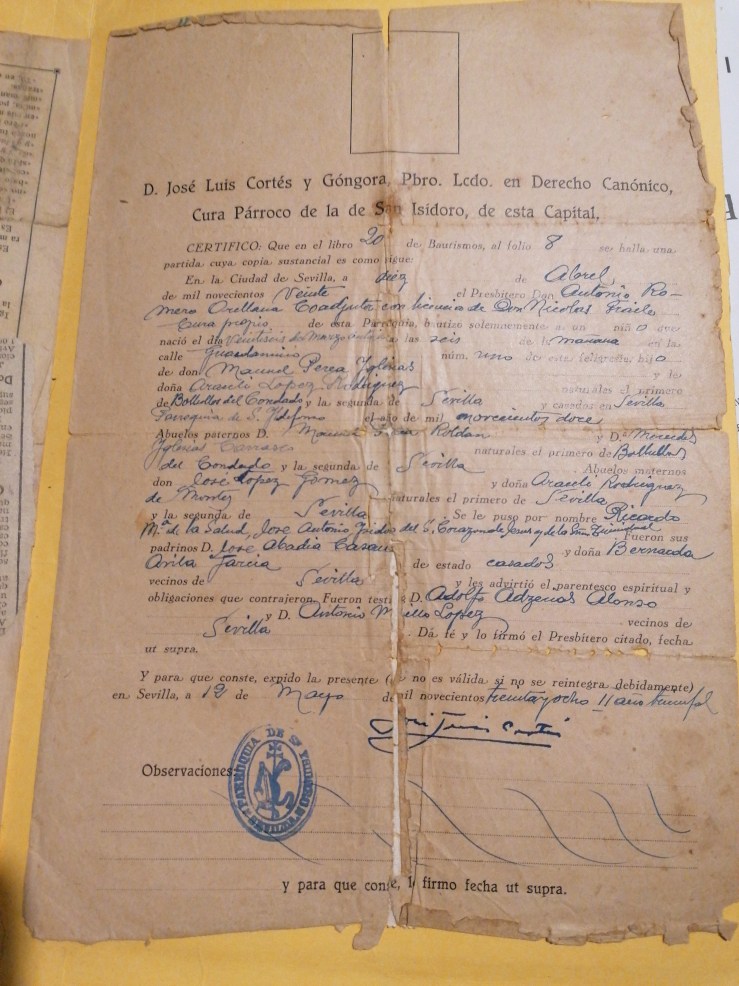 D. José Luis Cortés y Góngora, Pbro. Lcdo. en Derecho Canónico,
Cura Párroco de la de San Isidoro, de esta Capital,
CERTIFICO: Que en el libro 20 de Baurismos, al folio 8 se halla una
partida cuya copia sustancial es como sigue:
En la Ciudad de Sevilla, a diez de Abril
de mil novecientos veinte el Presbítero Don Antonio Ro-
mero Orellana Coadjutor con licencia de Don Nicolas
Cura propio de esta Parroquia, bautizé solemnemente a un niño que
nació el día veintiseis de Marzo a las seis de la mañana en la
calle núm. uno de esta feligresía: hijo
de don Manuel Perea Iglesias y de
doña Araceli Lopez Rodriguez naturales el primero
de Bollullos del Condado y la segunda de Sevilla y casados en Sevilla
Parroquia de S. Ildefonso el año de mil novecientos doce
Abuelos paternos D. Manuel Roldan y D.ª Mercedes
Iglesias naturales el primero de Bollullos
del Condado y la segunda de Sevilla . Abuelos maternos
don José Lopez Gomez y doña Araceli Rodriguez
de naturales el primero de Sevilla
y la segunda de Sevilla . Se le puso por nombre Ricardo
Mª de la Salud, Jose Antonio Isidro del S. Corazon de Jesus y de la Sma Trinidad . Fueron sus
padrinos D. Jose Abadia y doña Bernarda
Avila Garcia de estado casados
vecinos de Sevilla y les advirtió el parentesco espiritual y
obligaciones que contrajeron. Fueron testigos D. Adolfo Alonso
y D. Antonio Lopez vecinos de
Sevilla . Da fé y lo firmó el Presbítero citado, fecha
ut supra.
Y para que conste, expido la presente (que no es válida si no se reintegra debidamente)
en Sevilla, a 12 de Mayo de mil novecientos treinta y ocho II año triunfal
José Luis Cortés
Observaciones:
PARROQUIA DE Sn YSIDORO
SEVILLA
y para que conste, lo firmo fecha ut supra.